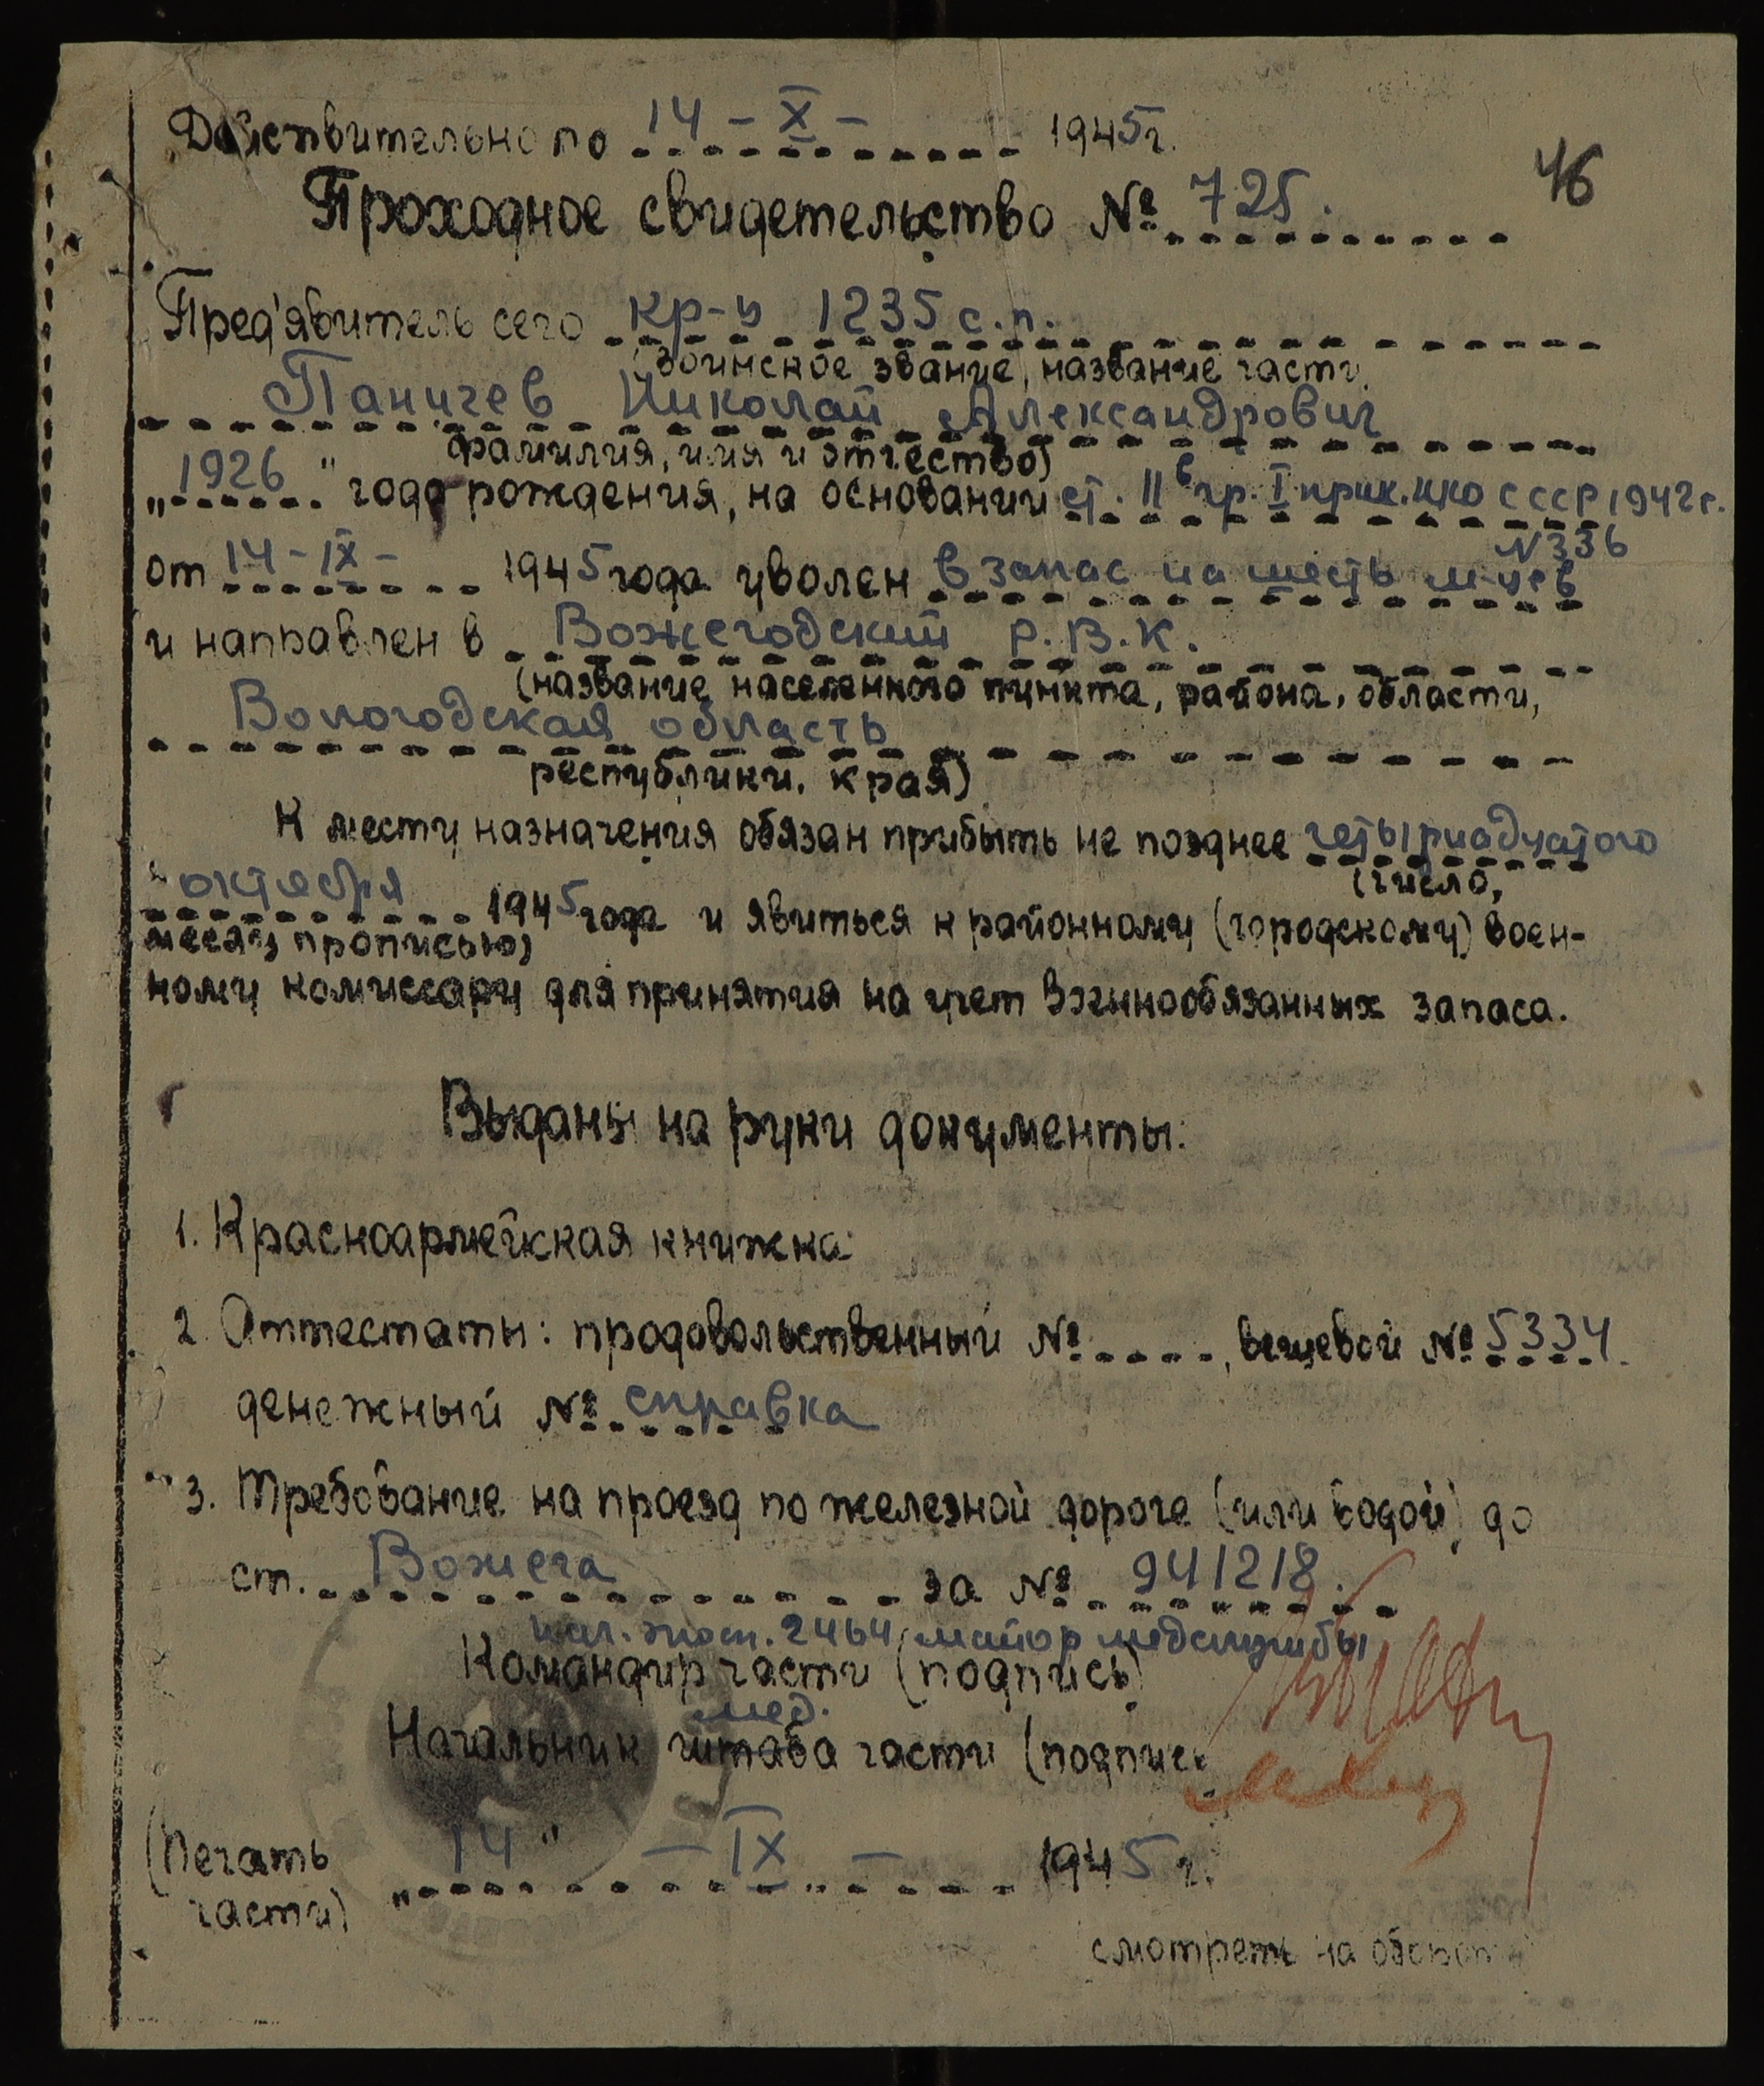 Действительно по 14 - X - 1945 г.
46
Проходное свидетельство № 725.
Пред'явитель сего кр-ц 1235 с.п.
(воинское звание, название части,
Паничев Николай Александрович
фамилия, имя и отчество)
„1926" года рождения, на основании ст. II в гр. I прик. НКО СССР 1942 г.
N 336
от 14 - IX - 1945 года уволен в запас на шесть м-цев
и направлен в Вожегодский Р.В.К.
(название населенного пункта, района, области,
Вологодская область
республики, края)
К месту назначения обязан прибыть не позднее четырнадцатого
(число,
октября 1945 года и явиться к районному (городскому) воен-
месяц прописью)
ному комиссару для принятия на учет военнообязанных запаса.
Выданы на руки документы:
1. Красноармейская книжка
2. Аттестаты: продовольственный № , вещевой № 5334.
денежный № справка
3. Требование на проезд по железной дороге (или водой) до
ст. Вожега за № 941218.
нач. госп. 2464 майор медслужбы
Командир части (подпись)
мед.
Начальник штаба части (подпись
(Печать „14" - IX - 1945 г.
части)
смотреть на обороте